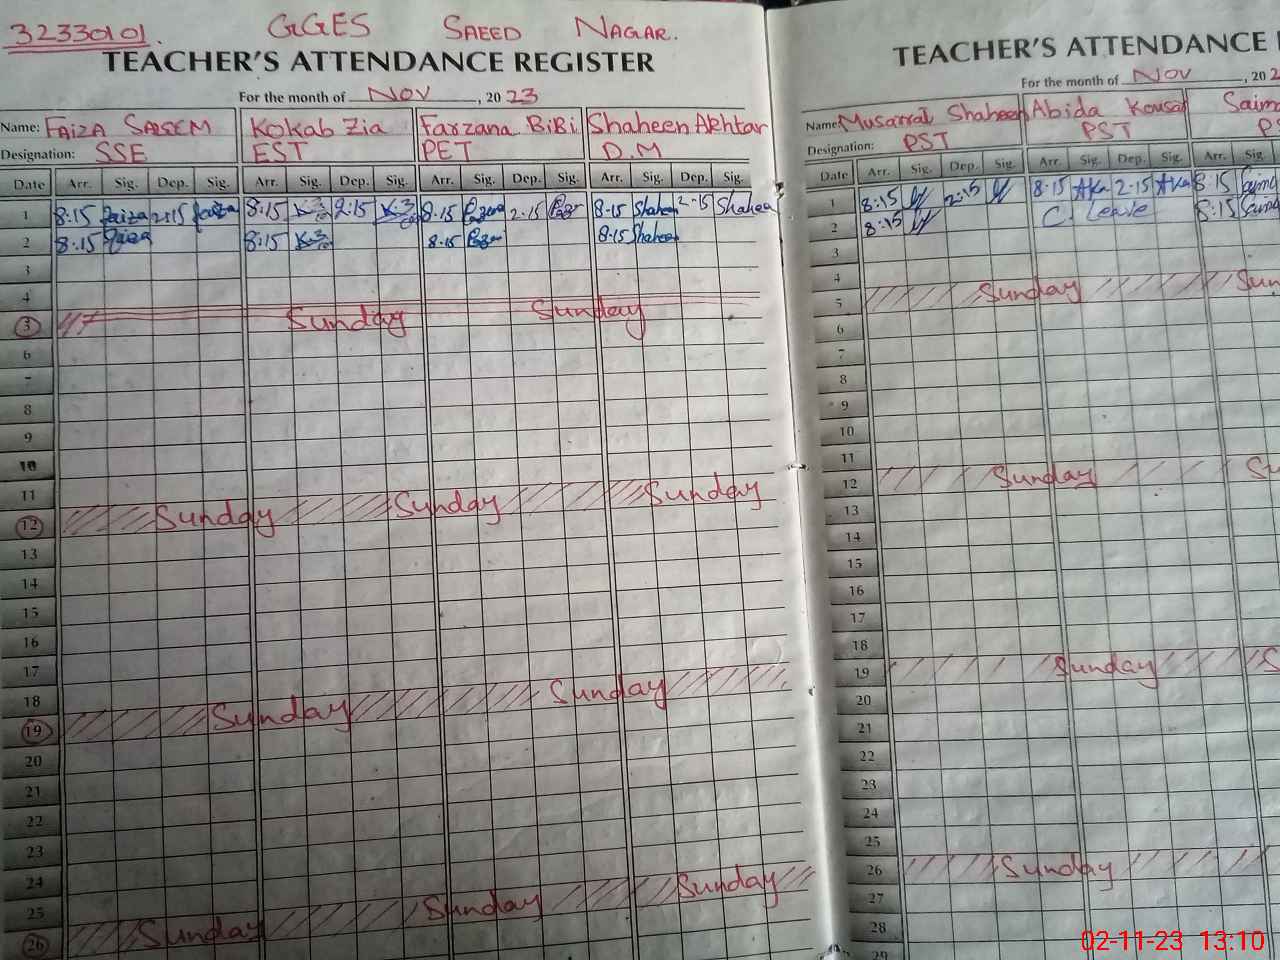 32330101. GGES SAEED NAGAR.
TEACHER'S ATTENDANCE REGISTER
For the month of NOV, 2023
Name: FAIZA SALEEM Kokab Zia Farzana BiBi Shaheen Akhtar
Designation: SSE EST PET D.M
Date Arr. Sig. Dep. Sig. Arr. Sig. Dep. Sig. Arr. Sig. Dep. Sig. Arr. Sig. Dep. Sig.
1 8·15 faiza 2:15 faiza 8:15 K.Z 2:15 K.Z 8·15 2·15 8·15 Shaheen 2-15 Shaheen
2 8·15 faiza 8:15 K.Z 8·15 8·15 Shaheen
3
4
5 Sunday Sunday
6
7
8
9
10
11
12 Sunday Sunday Sunday
13
14
15
16
17
18
19 Sunday Sunday
20
21
22
23
24
25
26 Sunday Sunday Sunday
TEACHER'S ATTENDANCE
For the month of NOV, 202
Name: Musarrat Shaheen Abida Kousar Saim
Designation: PST PST
Date Arr. Sig. Dep. Sig. Arr. Sig. Dep. Sig. Arr. Sig
1 8:15 2:15 8·15 Aka 2·15 Aka 8·15 Saima
2 8:15 C. Leave 8:15 Saima
3
4
5 Sunday Sun
6
7
8
9
10
11
12 Sunday Su
13
14
15
16
17
18
19 Sunday S
20
21
22
23
24
25
26 Sunday
27
28
29
02-11-23 13:10